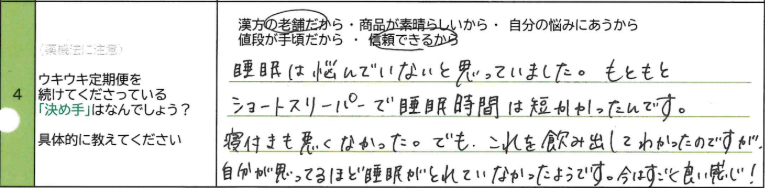 漢方の老舗だから・商品が素晴らしいから・ 自分の悩みにあうから
値段が手頃だから ・ 信頼できるから
(薬機法に注意)
4
ウキウキ定期便を
続けてくださっている
「決め手」はなんでしょう?
具体的に教えてください
睡眠は悩んでいないと思っていました。もともと
ショートスリーパーで睡眠時間は短かかったんです。
寝付きも悪くなかった。でも、これを飲み出してわかったのですが、
自分が思ってるほど睡眠がとれていなかったようです。今はすごく良い感じ!